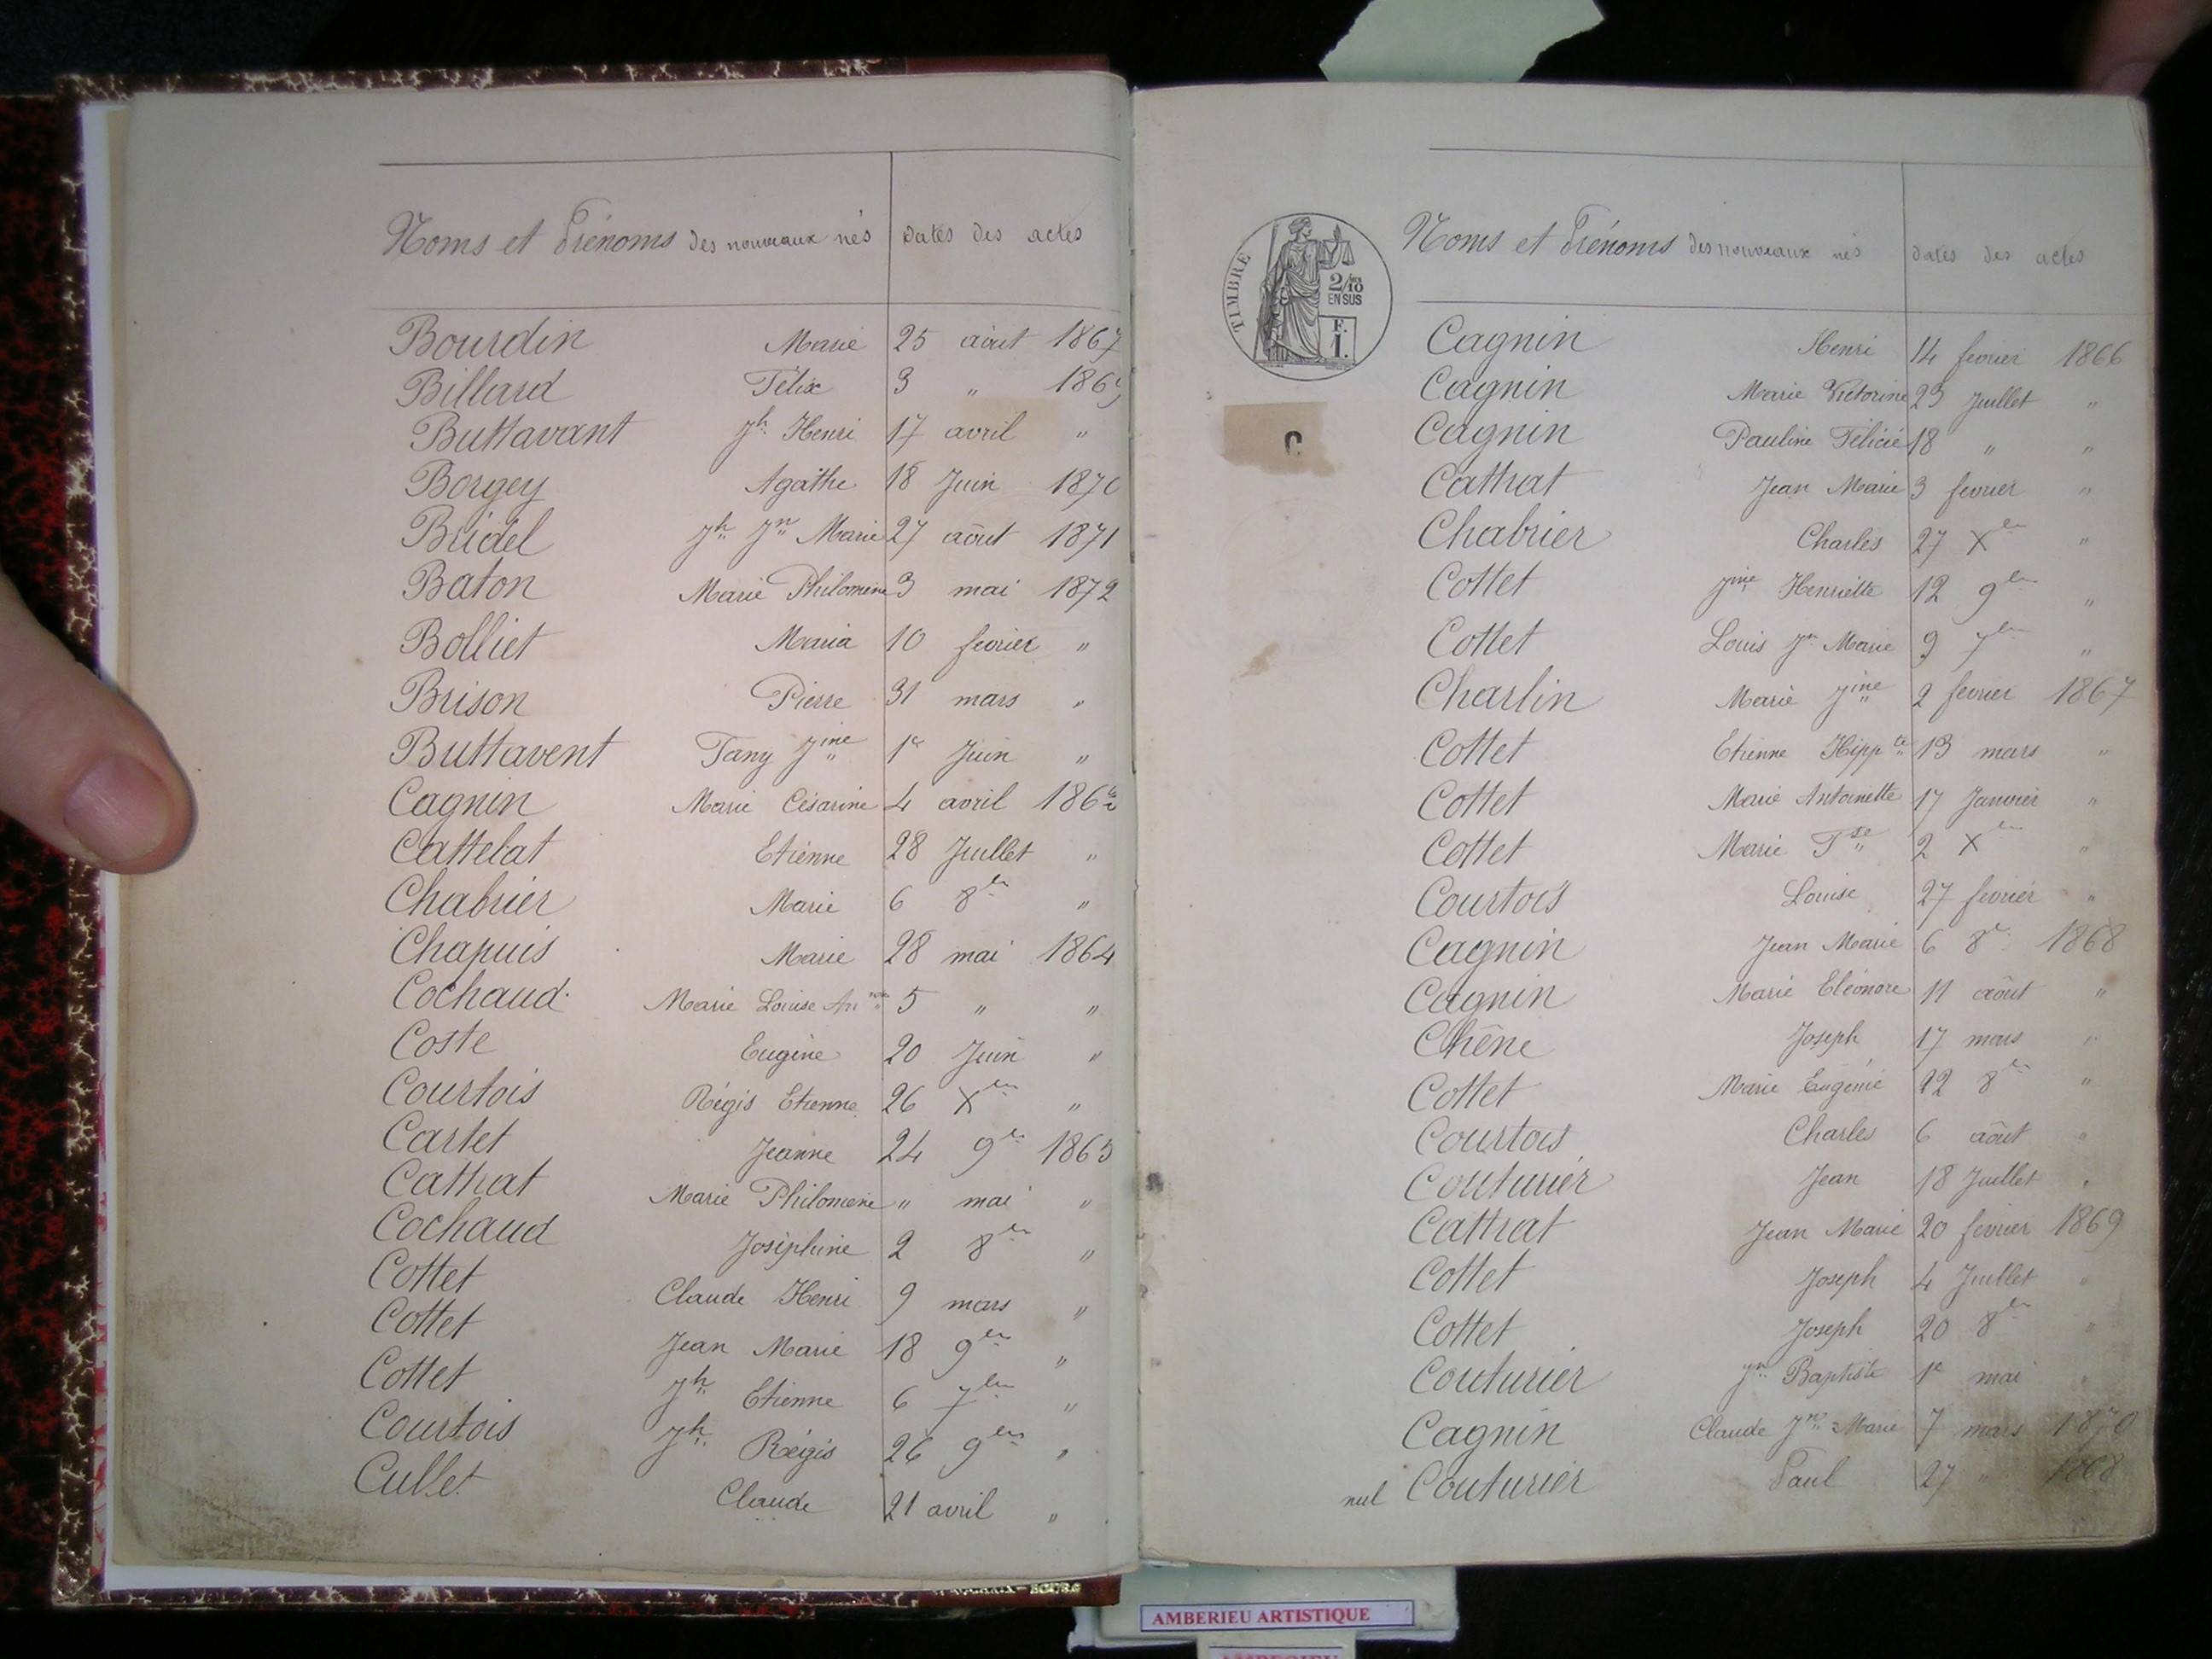 Noms et Prénoms des nouveaux nés Dates des actes
Bourdin Marie 25 août 1867
Billard Félix 3 " 1869
Buttavant Jh Henri 17 avril "
Borgey Agathe 18 Juin 1870
Bridel Jh Jn Marie 27 août 1871
Baton Marie Philomène 3 mai 1872
Bolliet Maria 10 fevrier "
Brison Pierre 31 mars "
Buttavent Fany Jine 1er Juin "
Cagnin Marie Césarine 4 avril
Cattelat Etienne 28 Juillet "
Chabrier Marie 6 8bre "
Chapuis Marie 28 mai 1864
Cochaud Marie Louise 5 " "
Coste Eugène 20 Juin "
Courtois Régis Etienne 26 Xbre "
Cartet Jeanne 24 9bre 1865
Cathrat Marie Philomène " mai "
Cochaud Joséphine 2 8bre "
Cottet Claude Henri 9 mars "
Cottet Jean Marie 18 9bre "
Cottet Jh Etienne 6 7bre "
Courtois Jh Régis 26 9bre "
Cullet Claude 21 avril "
TIMBRE
2/10 EN SUS
F. 1.
C
Noms et Prénoms des nouveaux nés dates des actes
Cagnin Henri 14 fevrier 1866
Cagnin Marie Victorine 23 Juillet "
Cagnin Pauline Félicié 18 " "
Cathrat Jean Marie 3 fevrier "
Chabrier Charles 27 Xbre "
Cottet Jine Henriette 12 9bre "
Cottet Louis Jn Marie 9 7bre "
Charlin Marie Jine 2 fevrier 1867
Cottet Etienne Hippte 13 mars "
Cottet Marie Antoinette 17 Janvier "
Cottet Marie Fse 2 Xbre "
Courtois Louise 27 fevrier "
Cagnin Jean Marie 6 8e 1868
Cagnin Marie Eléonore 11 août "
Chêne Joseph 17 mars "
Cottet Marie Eugénie 22 8bre "
Courtois Charles 6 août "
Couturier Jean 18 Juillet "
Cathrat Jean Marie 20 fevrier 1869
Cottet Joseph 4 Juillet "
Cottet Joseph 20 8bre "
Couturier Jn Baptiste 1er mai "
Cagnin Claude Jn Marie 7 mars 1870
nul Couturier Paul 27 " 1868
AMBERIEU ARTISTIQUE